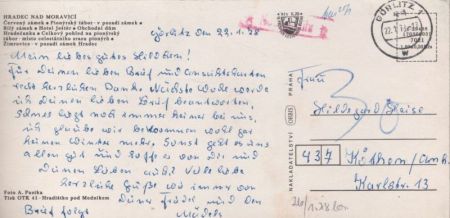 HRADEC NAD MORAVICÍ
Červený zámek • Pionýrský tábor - v pozadí zámek •
Bílý zámek • Hotel Jelšev • Obchodní dům
Hradečanka • Celkový pohled na pionýrský
tábor - místo celostátního srazu pionýrů •
Zimrovice - v pozadí zámek Hradec
Görlitz den 22.1.88
Mein liebes gutes Hildchen!
Für Deinen lieben Brief und Ansichtskarten
recht herzlichen Dank. Nächste Woche werde
ich Deinen lieben Brief beantworten.
liegt noch immer keiner bei uns,
ich glaube wir bekommen wohl gar
keinen Winter mehr. Sonst geht es uns
allen gut und hoffe es von Dir und
Deinen Lieben auch. Viele liebe
herzliche Grüße wie immer von
Deiner
Brief folgt
Foto A. Pustka
Tisk OTK 41 - Hradištko pod Medníkem
NAKLADATELSTVÍ
ORBIS
PRAHA
GÖRLITZ 1
22.
Frau
Hildegard
437
Köthen/Anh.
Karlstr. 13